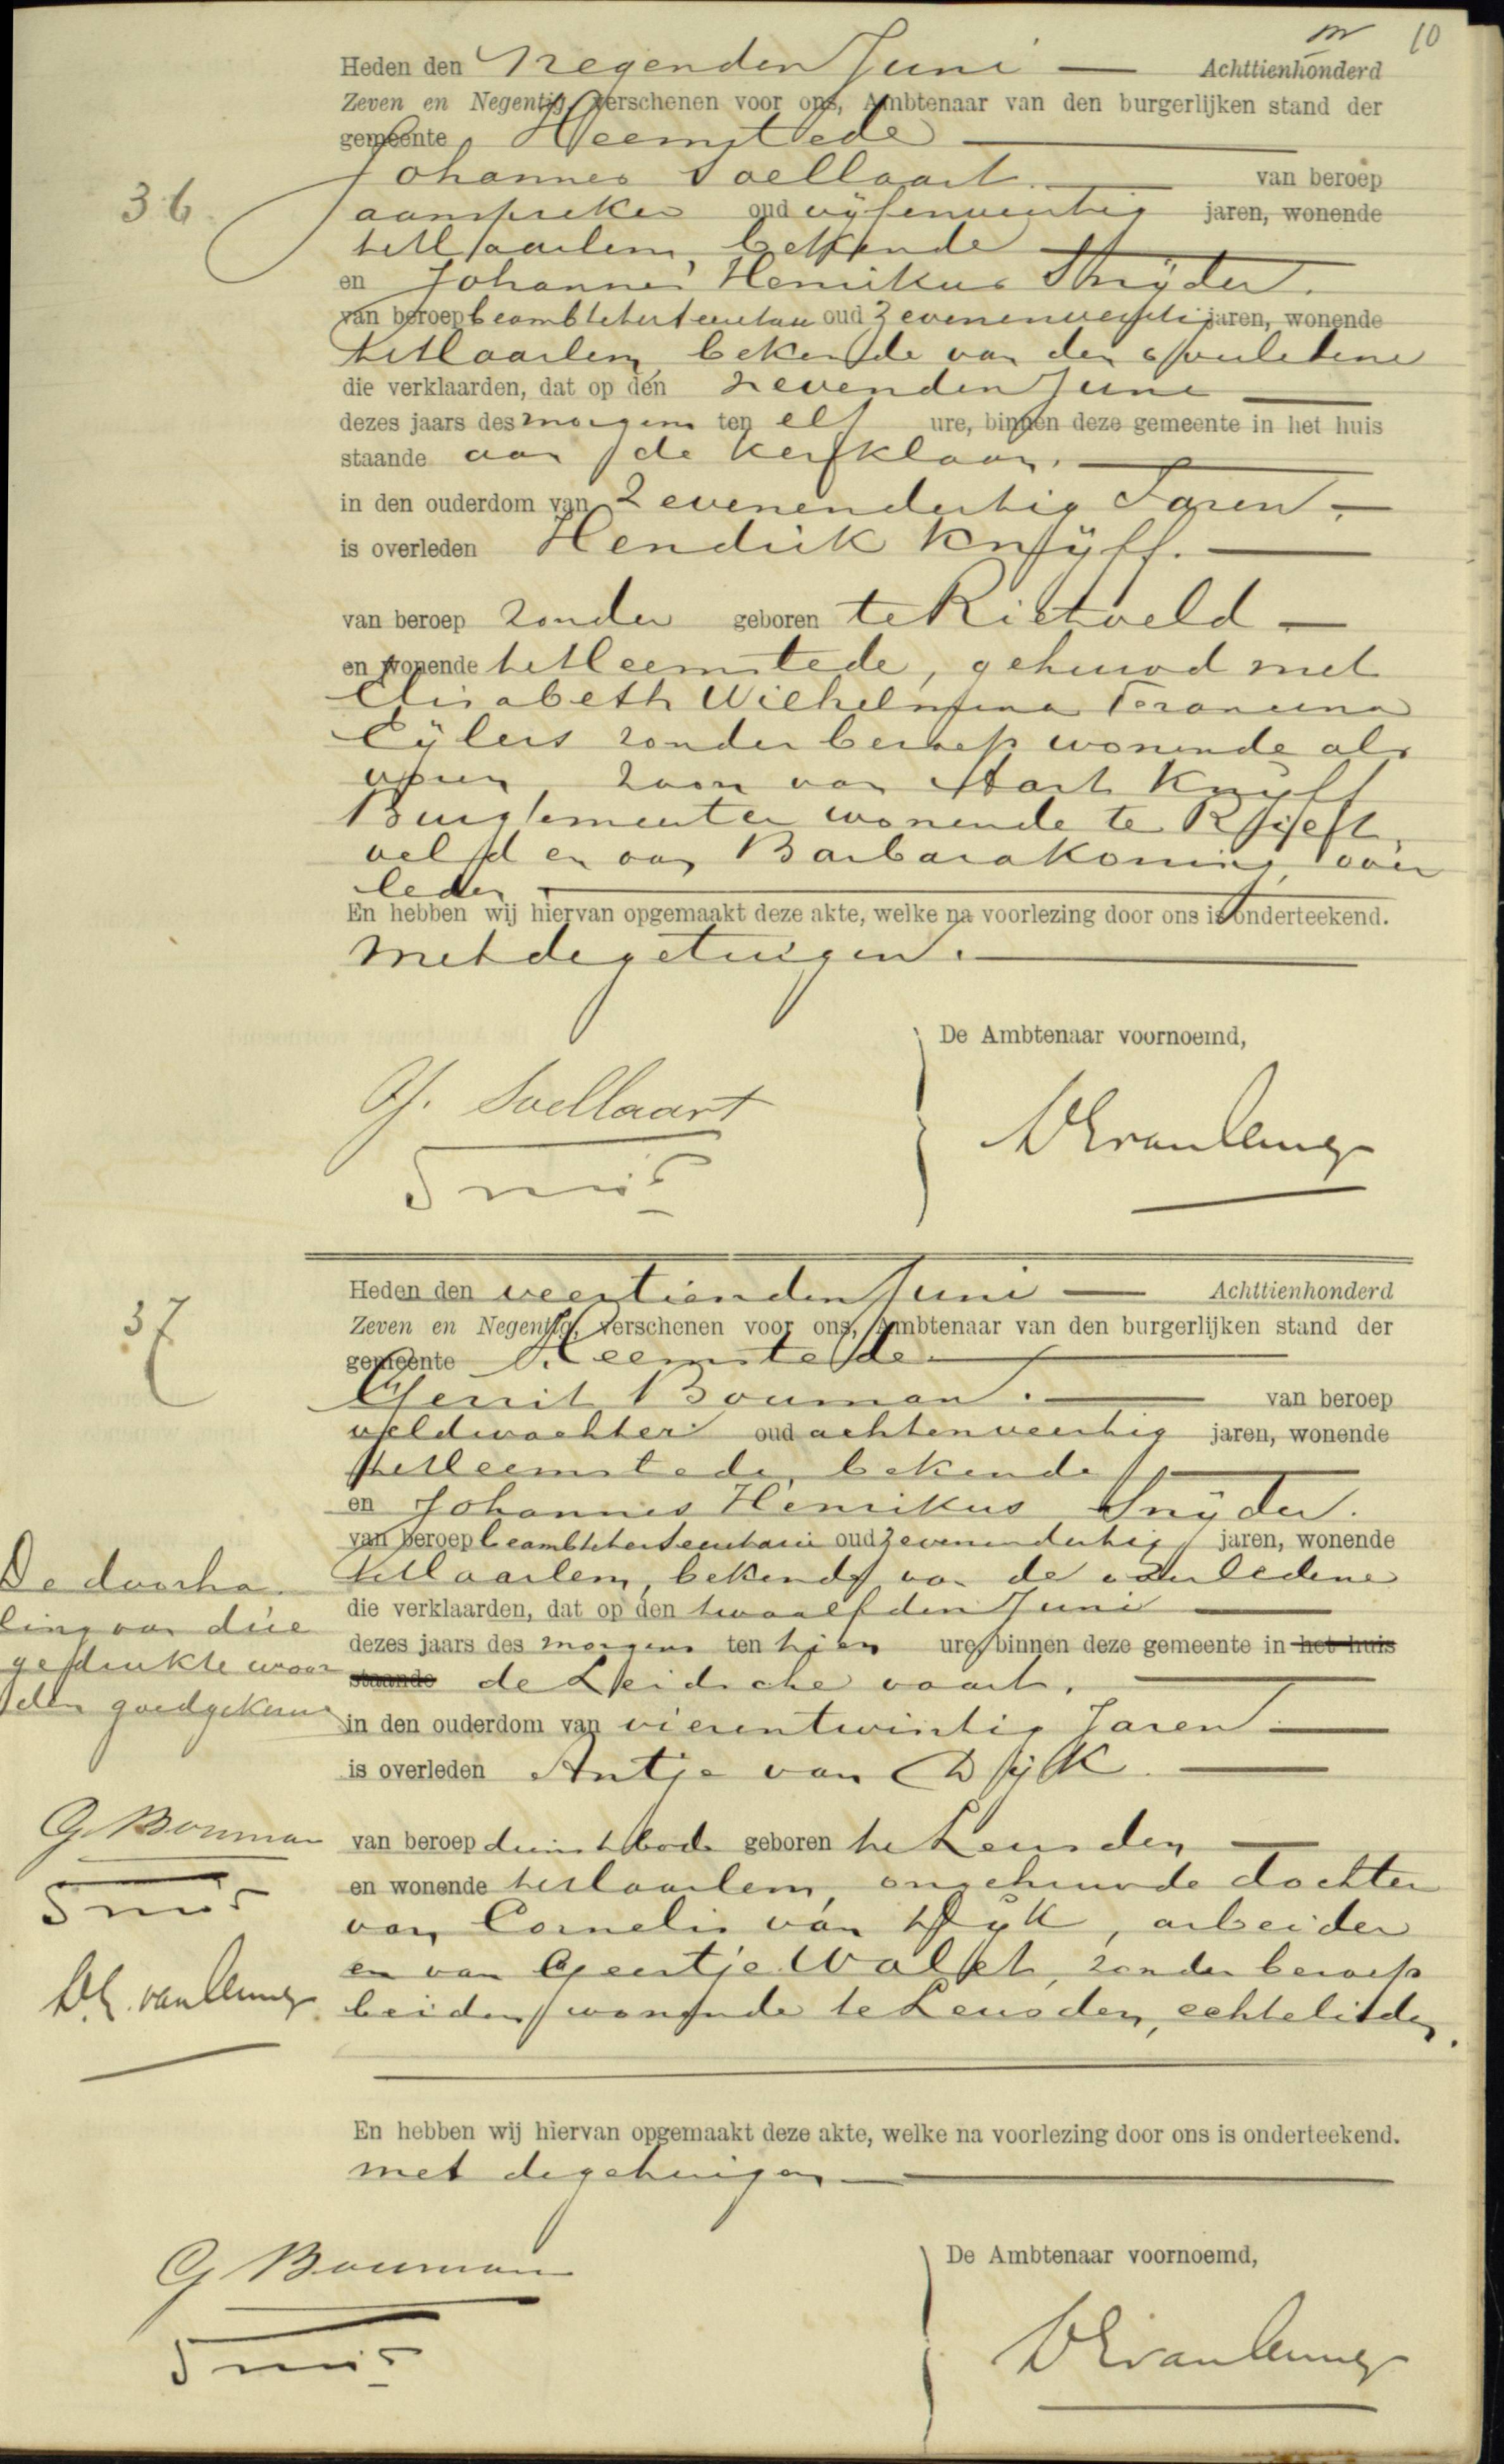 10
36
Heden den Negenden Juni — Achttienhonderd
Zeven en Negentig, verschenen voor ons, Ambtenaar van den burgerlijken stand der
gemeente Heemstede
Johannes Soellaart van beroep
aanspreker oud vijfenveertig jaren, wonende
te Haarlem, bekende
en Johannes Henrikus Snijder.
van beroep beambte ter secretarie oud Zevenendertig jaren, wonende
te Haarlem bekende van den overledene
die verklaarden, dat op den zevenden Juni
dezes jaars des morgens ten elf ure, binnen deze gemeente in het huis
staande aan de Kerklaan.
in den ouderdom van Zevenendertig Jaren
is overleden Hendrik Knijff.
van beroep zonder geboren te Rietveld
en wonende te Heemstede, gehuwd met
Elisabeth Wilhelmina Francina
Eijlers zonder beroep wonende als
voren, zoon van Aart Knijff
Burgemeester wonende te Riet
veld en van Barbara Koning, over
leden
En hebben wij hiervan opgemaakt deze akte, welke na voorlezing door ons is onderteekend.
met de getuigen.
De Ambtenaar voornoemd,
J. Soellaart
DEvanLennep
37
Heden den veertienden Juni — Achttienhonderd
Zeven en Negentig, verschenen voor ons, Ambtenaar van den burgerlijken stand der
gemeente Heemstede
Gerrit Bouman. van beroep
veldwachter oud achtenveertig jaren, wonende
te Heemstede, bekende
en Johannes Henrikus Snijder.
van beroep beambte ter Secretarie oud zevenendertig jaren, wonende
te Haarlem, bekende van de overledene
die verklaarden, dat op den twaalfden Juni
dezes jaars des morgens ten tien ure, binnen deze gemeente in het huis
staande de Leidsche vaart.
in den ouderdom van vierentwintig Jaren
is overleden Antje van Dijk.
van beroep dienstbode geboren te Leusden
en wonende te Haarlem, ongehuwde dochter
van Cornelis van Dijk, arbeider
en van Geertje Wolfet, zonder beroep
beiden wonende te Leusden, echtelieden.
De doorha
ling van drie
gedrukte woor
den goedgekeurd
G Bouman
D.E. van Lennep
En hebben wij hiervan opgemaakt deze akte, welke na voorlezing door ons is onderteekend.
met de getuigen
De Ambtenaar voornoemd,
G Bouman
DEvanLennep